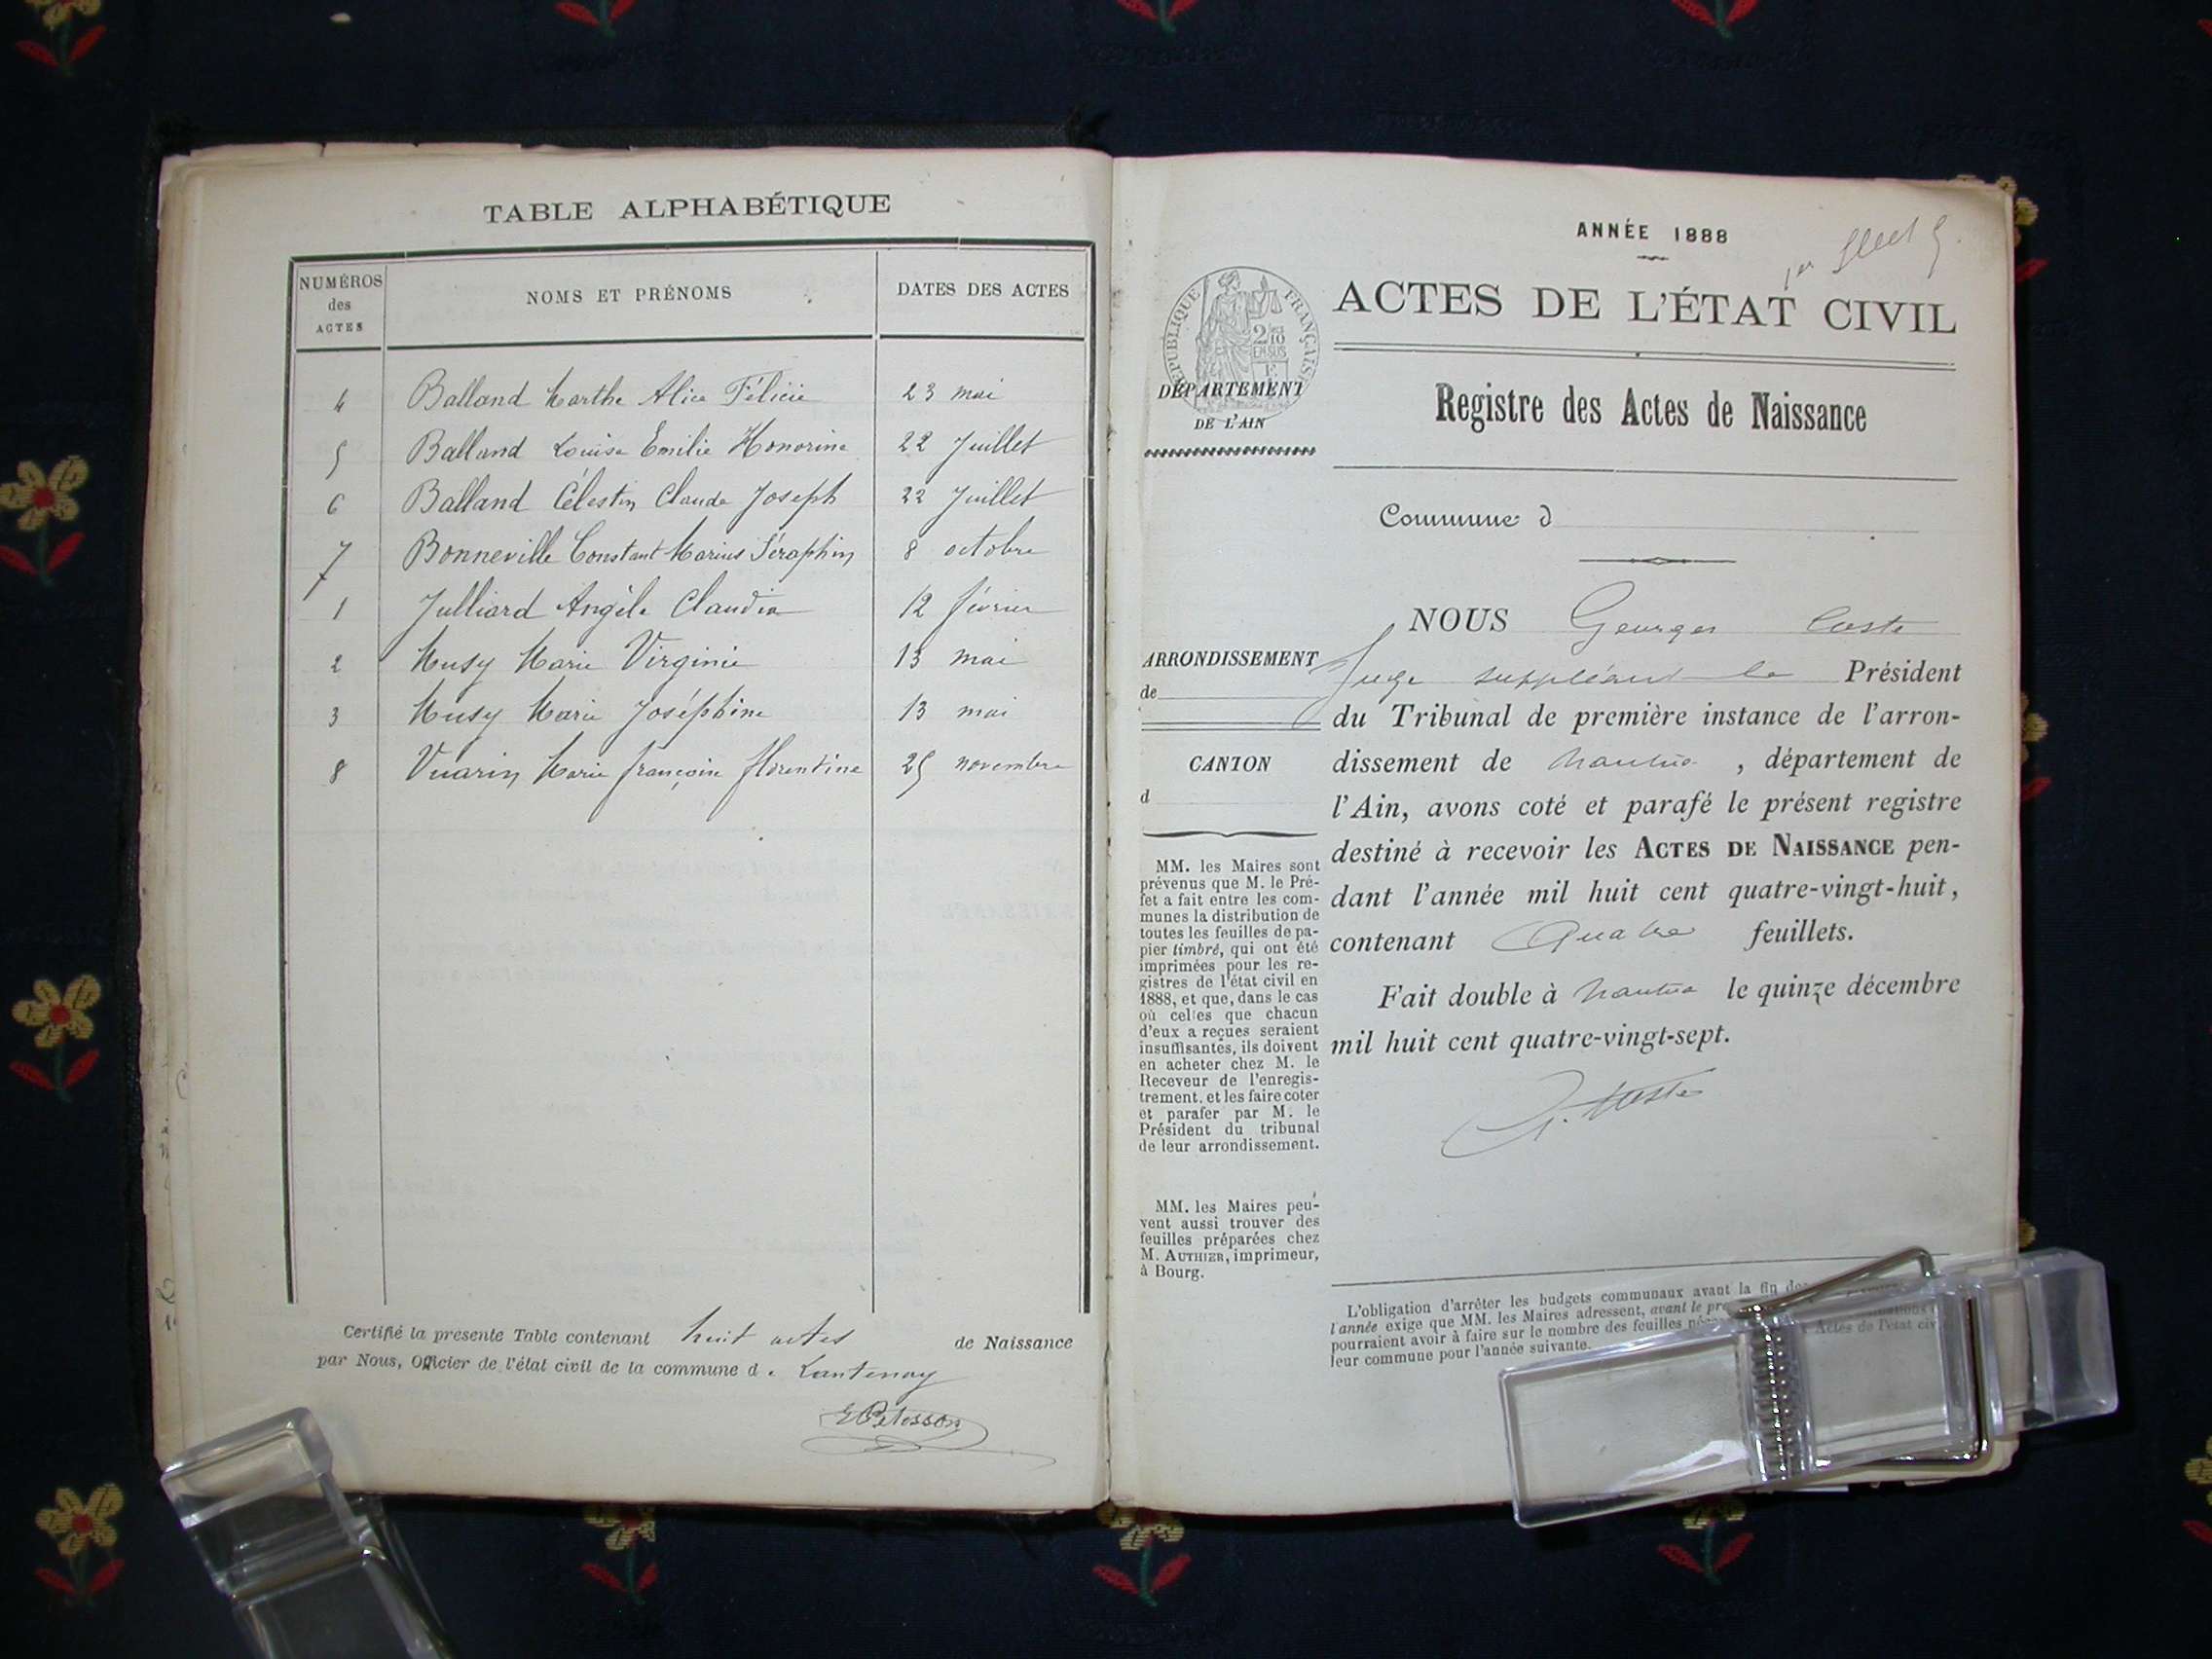 TABLE ALPHABÉTIQUE
NUMÉROS des ACTES
NOMS ET PRÉNOMS
DATES DES ACTES
4 Balland Marthe Alice Félicie 23 mai
5 Balland Louise Emilie Honorine 22 Juillet
6 Balland Célestin Claude Joseph 22 Juillet
7 Bonneville Constant Marius Séraphin 8 octobre
1 Julliard Angèle Claudia 12 février
2 Musy Marie Virginie 13 mai
3 Musy Marie Joséphine 13 mai
8 Vuarin Marie françoise florentine 25 novembre
Certifié la présente Table contenant huit actes de Naissance
par Nous, Officier de l'état civil de la commune d. Lantenay
ANNÉE 1888
1er
ACTES DE L'ÉTAT CIVIL
RÉPUBLIQUE FRANÇAISE
DÉPARTEMENT
DE L'AIN
Registre des Actes de Naissance
Commune d
NOUS Georges Coste
Juge suppléant le Président
du Tribunal de première instance de l'arron-
dissement de Nantua, département de
l'Ain, avons coté et parafé le présent registre
destiné à recevoir les ACTES DE NAISSANCE pen-
dant l'année mil huit cent quatre-vingt-huit,
contenant Quatre feuillets.
Fait double à Nantua le quinze décembre
mil huit cent quatre-vingt-sept.
G. Coste
ARRONDISSEMENT
de
CANTON
d
MM. les Maires sont
prévenus que M. le Pré-
fet a fait entre les com-
munes la distribution de
toutes les feuilles de pa-
pier timbré, qui ont été
imprimées pour les re-
gistres de l'état civil en
1888, et que, dans le cas
où celles que chacun
d'eux a reçues seraient
insuffisantes, ils doivent
en acheter chez M. le
Receveur de l'enregis-
trement, et les faire coter
et parafer par M. le
Président du tribunal
de leur arrondissement.
MM. les Maires peu-
vent aussi trouver des
feuilles préparées chez
M. AUTHIER, imprimeur,
à Bourg.
L'obligation d'arrêter les budgets communaux avant la fin de
l'année exige que MM. les Maires adressent, avant le
pourraient avoir à faire sur le nombre des feuilles Actes de l'état
leur commune pour l'année suivante.